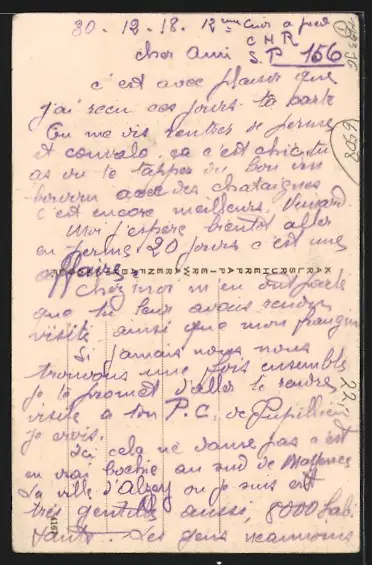 30. 12. 18. 12eme Cuir. a pied
C H R
S. P 156
cher ami
c'est avec plaisir que
j'ai recu ces jours ta carte
tu me dis rentrer de perme
et convalo. ça c'est chic tu
as du te tapper du bon vin
bourru avec des chataignes
c'est encore meilleurs. Veinard
Moi j'espère bientot aller
en perme 20 jours c'est une
affaire.
Chez moi m'en ont parlé
que tu leur avais rendu
visite ainsi que mon frangin
Si jamais nous nous
trouvons une fois ensemble
je te promet d'aller te rendre
visite a ton P.C. de Pupillin
je crois.
Ici cela ne danse pas c'est
en vrai boche au sud de Mayence
La ville d'Alzey ou je suis est
très gentille aussi, 8000 habi
tants. Les gens neanmoins